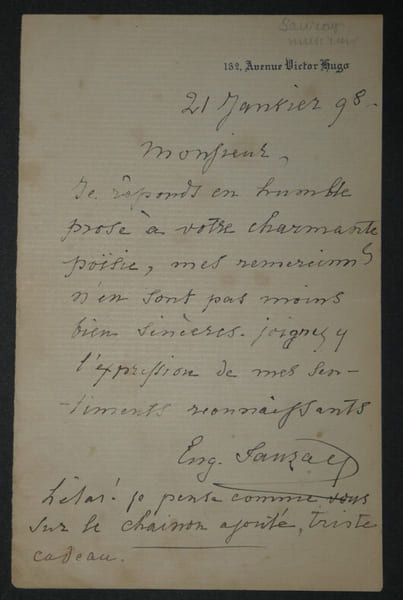 Sauzay
musicien
132, Avenue Victor Hugo
21 Janvier 98-
Monsieur,
Je réponds en humble
prose à votre charmante
poësie, mes remerciem^ts
n'en sont pas moins
bien sincères. joignez y
l'expression de mes sen-
-timents reconnaissants
Eug. Sauzay
hélas! je pense comme vous
sur le chainon ajouté, triste
cadeau.